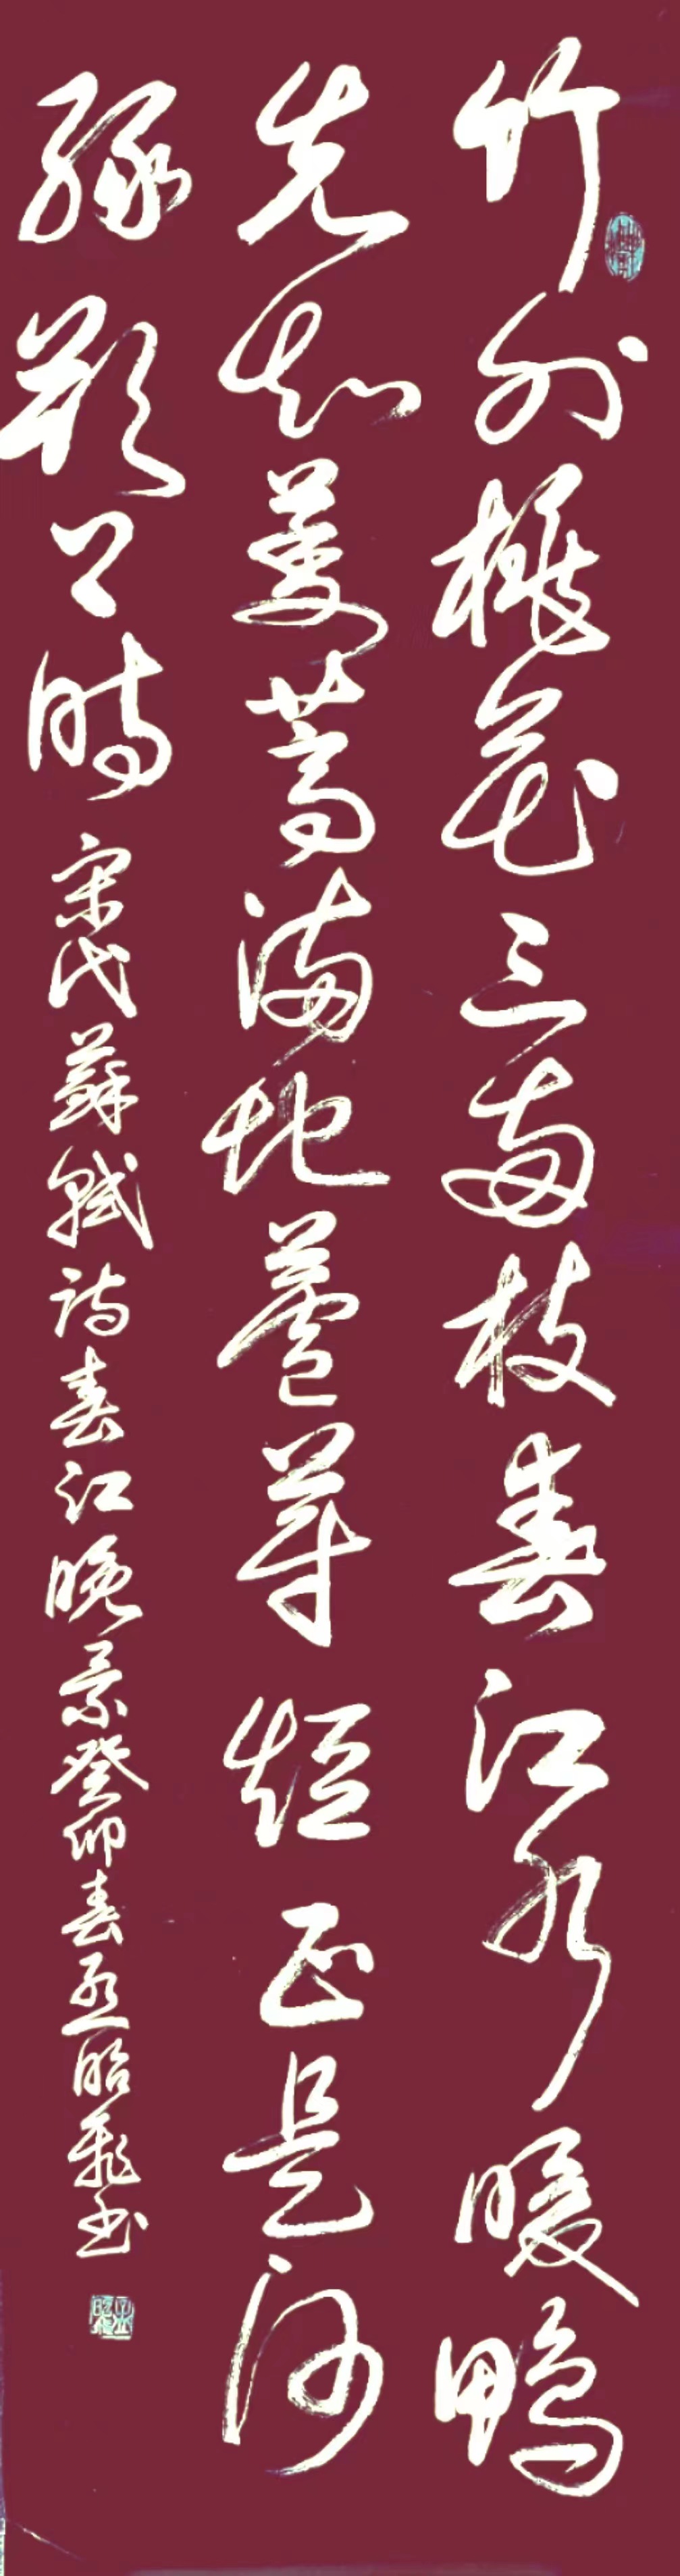 竹外桃花三兩枝春江水暖鴨
先知蔞蒿滿地蘆芽短正是河
豚欲上時 宋代蘇軾詩春江晚景癸卯春孟昭飛书